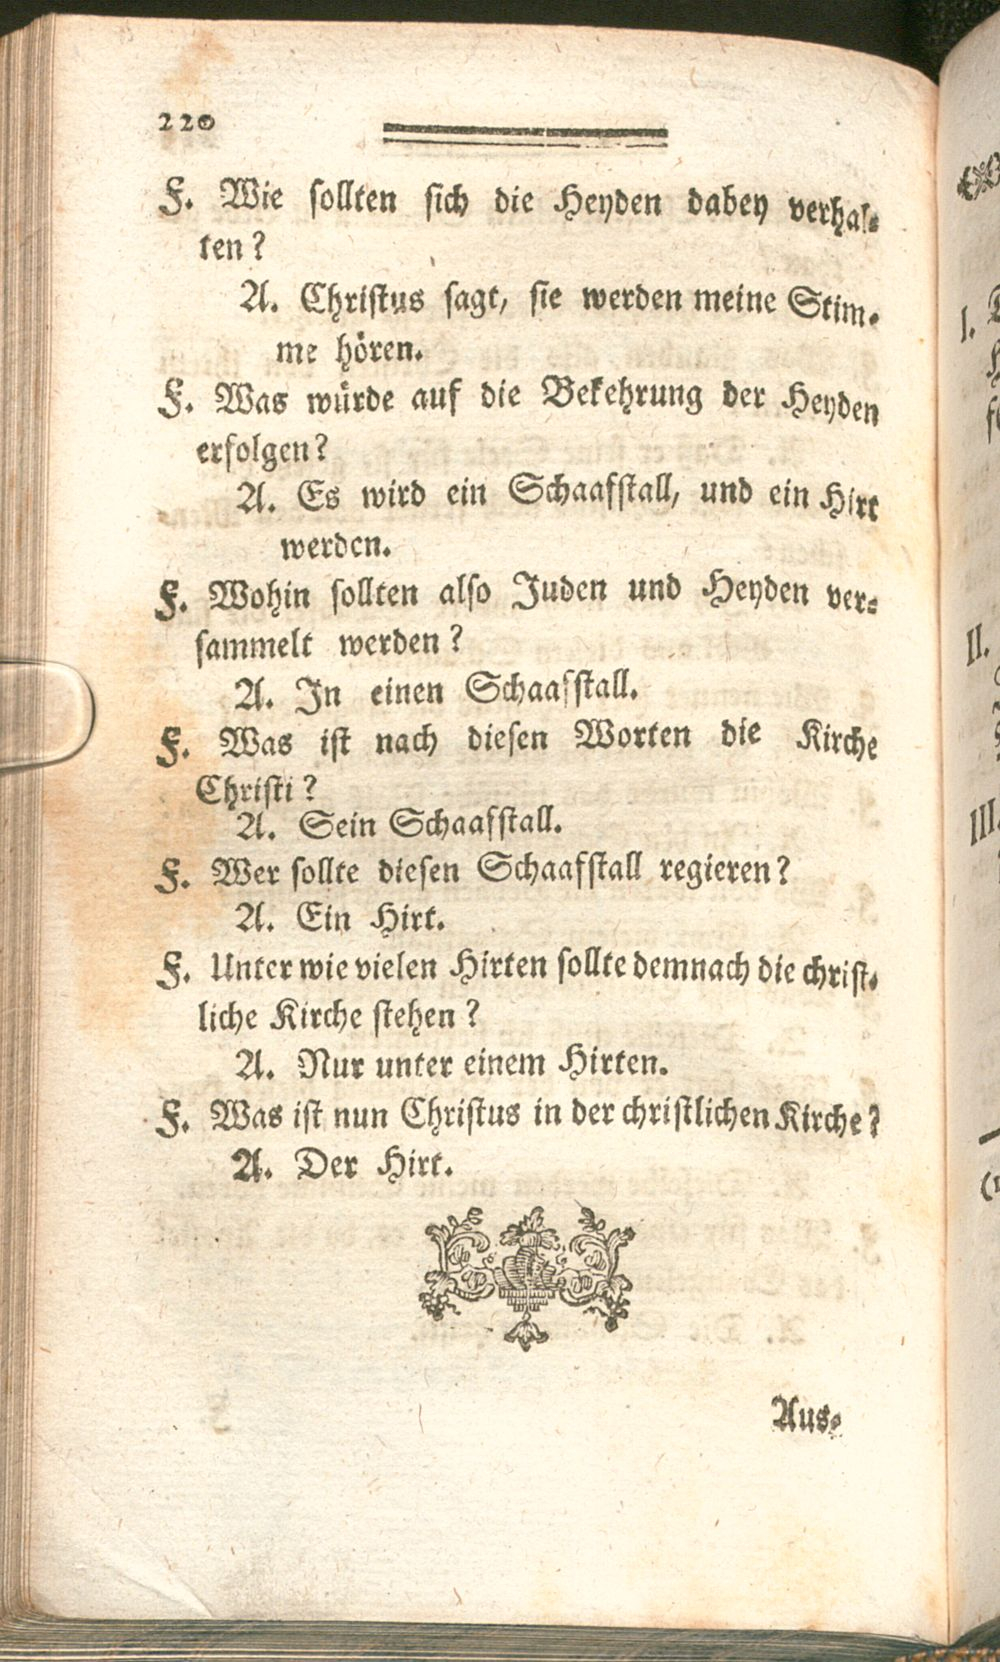 220
F. Wie sollten sich die Heyden dabey verhal-
ten?
A. Christus sagt, sie werden meine Stim-
me hören.
F. Was würde auf die Bekehrung der Heyden
erfolgen?
A. Es wird ein Schaafstall, und ein Hirt
werden.
F. Wohin sollten also Juden und Heyden ver-
sammelt werden?
A. In einen Schaafstall.
F. Was ist nach diesen Worten die Kirche
Christi?
A. Sein Schaafstall.
F. Wer sollte diesen Schaafstall regieren?
A. Ein Hirt.
F. Unter wie vielen Hirten sollte demnach die christ-
liche Kirche stehen?
A. Nur unter einem Hirten.
F. Was ist nun Christus in der christlichen Kirche?
A. Der Hirt.
Aus-
I.
II.
III.